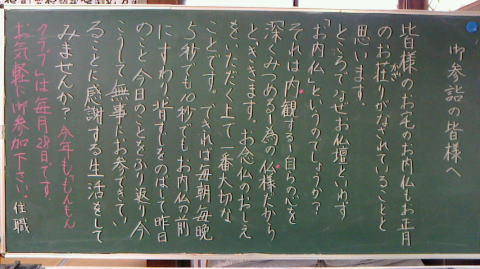 御参詣の皆様へ
皆様のお宅のお内仏もお正月
のお荘りがなされていることと
かざ
思います。
ところでなぜお仏壇といわず
「お内仏」というのでしょうか?
それは内観する=自らの心を
深くみつめる=為の仏様だから
とききます。お念仏のおしえ
をいただく上で一番大切な
ことです。できれば毎朝毎晩
5秒でも10秒でもお内仏の前
にすわり背すじをのばして昨日
のこと今日のことをふり返り、今
こうして無事にお参りできてい
ることに感謝する生活をして
みませんか? 今年も「もんもん
クラブ」は毎月28日です。
お気軽に御参加下さい。住職